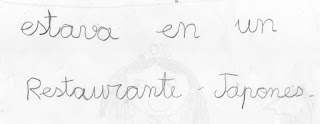 estava en un
Restaurante - Japones.